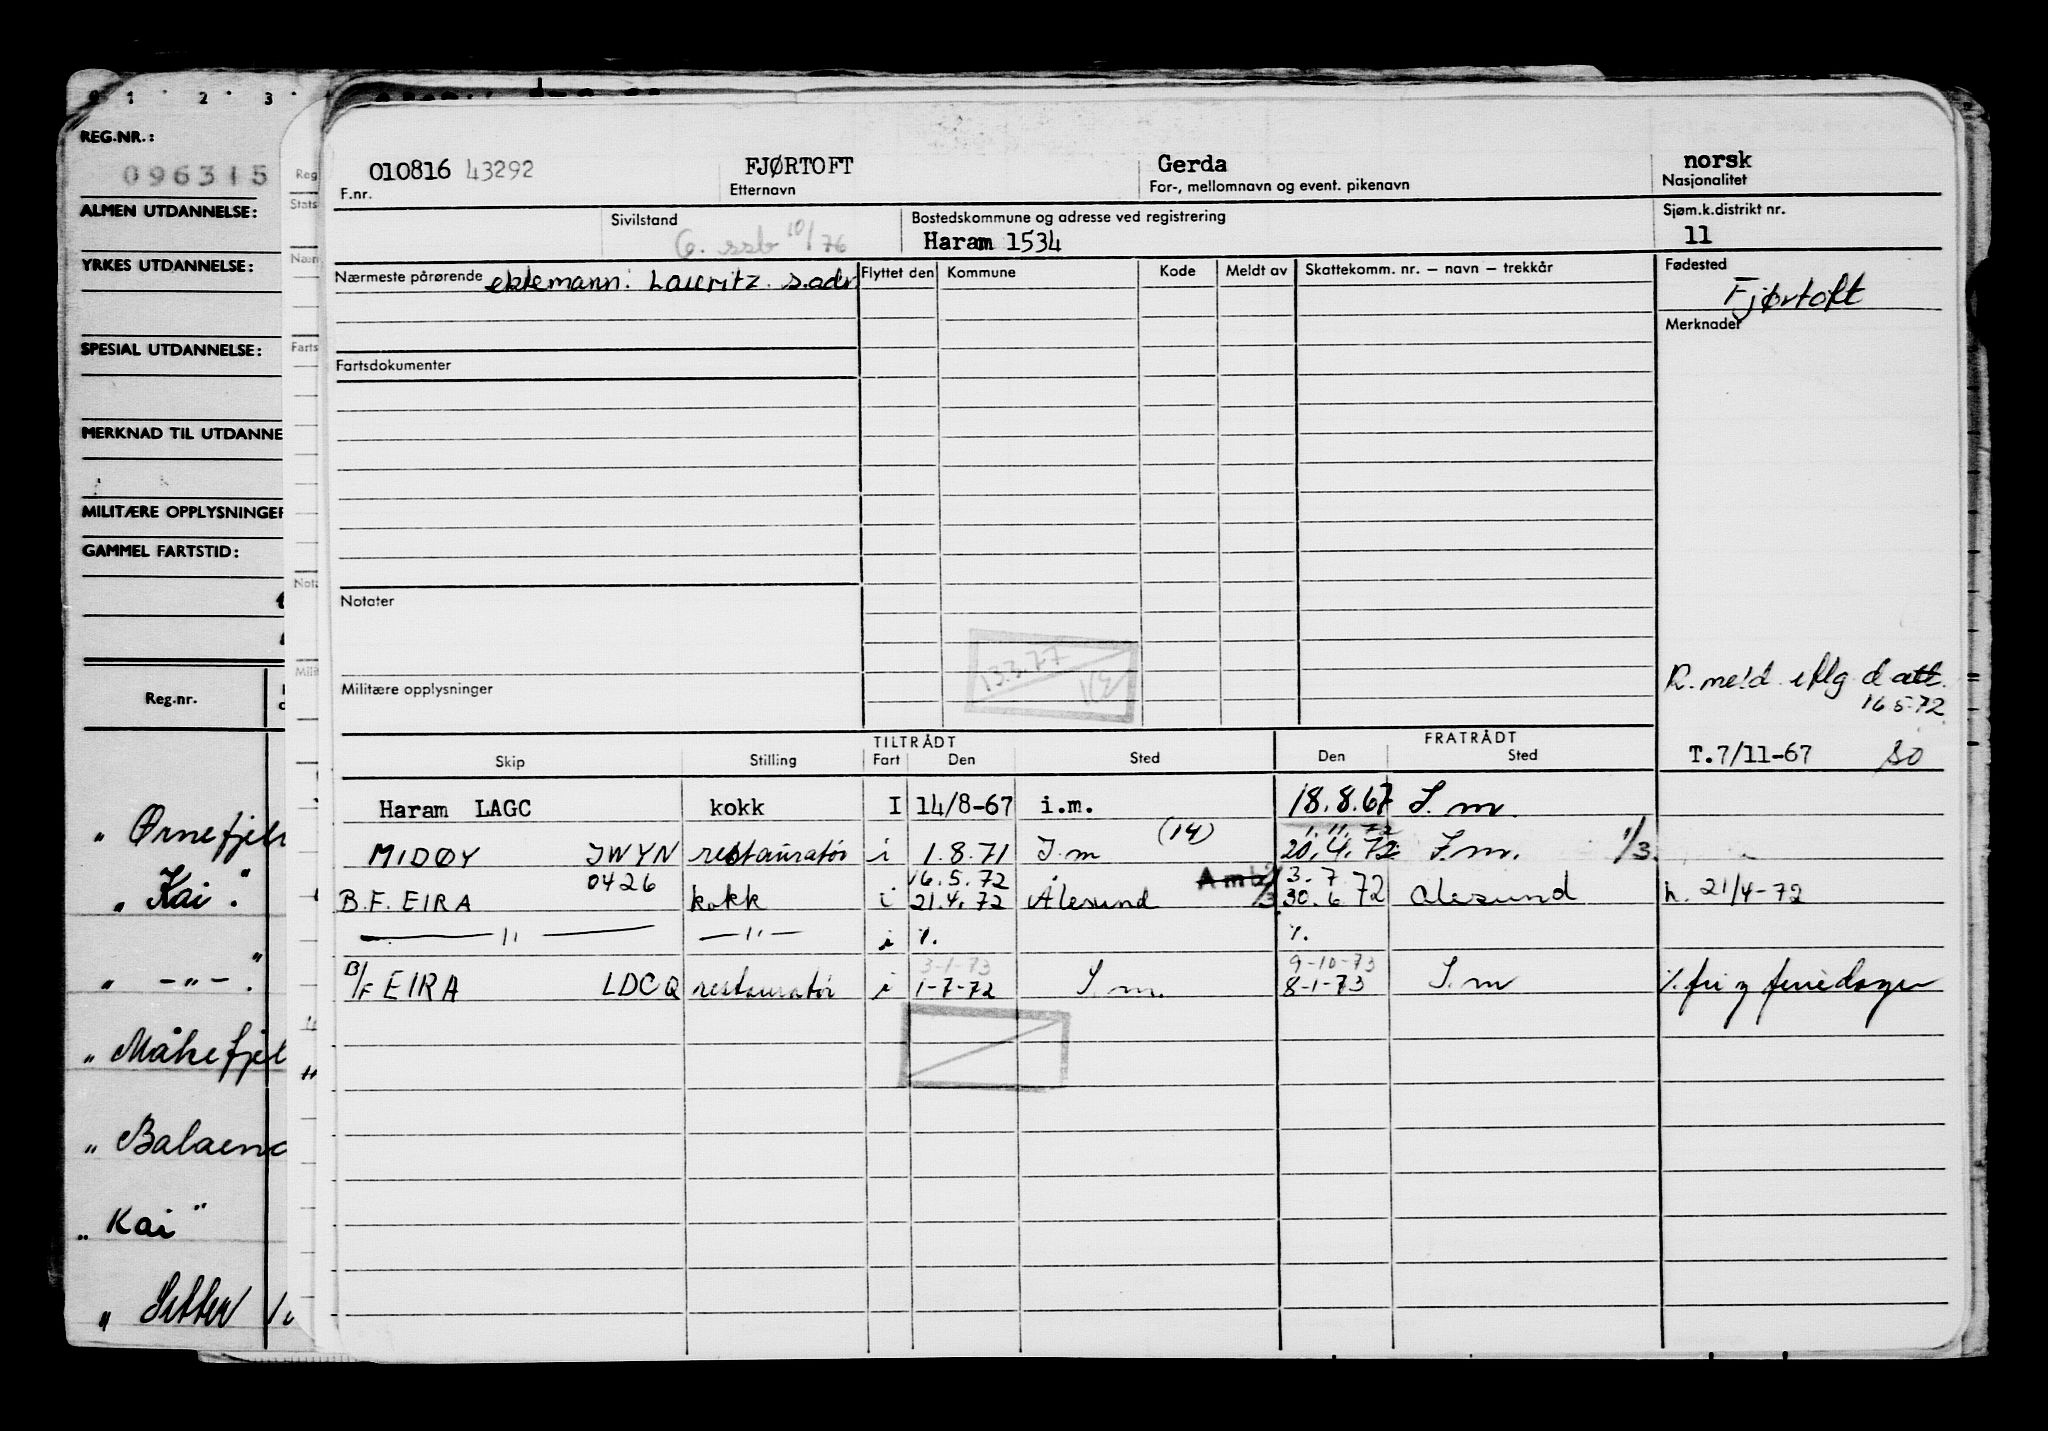 REG.NR.:
096315
ALMEN UTDANNELSE:
YRKES UTDANNELSE:
SPESIAL UTDANNELSE:
MERKNAD TIL UTDANNE
MILITÆRE OPPLYSNINGER
GAMMEL FARTSTID:
Reg.nr.
" Ørnefjell
" Kai".
" -"-".
" Måkefjel
" Balaena
" Kai"
010816 43292 FJØRTOFT Gerda norsk
F.nr. Etternavn For-, mellomnavn og event. pikenavn Nasjonalitet
Sivilstand Bostedskommune og adresse ved registrering Sjøm.k.distrikt nr.
G. ssb 10/76 Haram 1534 11
Nærmeste pårørende ektemann: Lauritz s.adr Flyttet den Kommune Kode Meldt av Skattekomm. nr. – navn – trekkår Fødested
Fjørtoft
Merknader
Fartsdokumenter
Notater
13.3.77
Militære opplysninger
R. meld. eflg d att.
16 5-72
TILTRÅDT FRATRÅDT
Skip Stilling Fart Den Sted Den Sted T.7/11-67 SO
Haram LAGC kokk I 14/8-67 i.m. 18.8.67 I.m.
(14) 1.11.72
MIDØY JWYN restauratør i 1.8.71 I.m 20.4.72 I.m. 1/3.
0426 16.5.72 Amb 3.7
B.F. EIRA kokk i 21.4.72 Ålesund /3 30.6 72 Ålesund h. 21/4-72
— " — — " — i %. %.
3-1-73 9-10-73
B/F EIRA LDCQ restauratør i 1-7-72 I.m. 8-1-73 I.m %. fri og feriedager